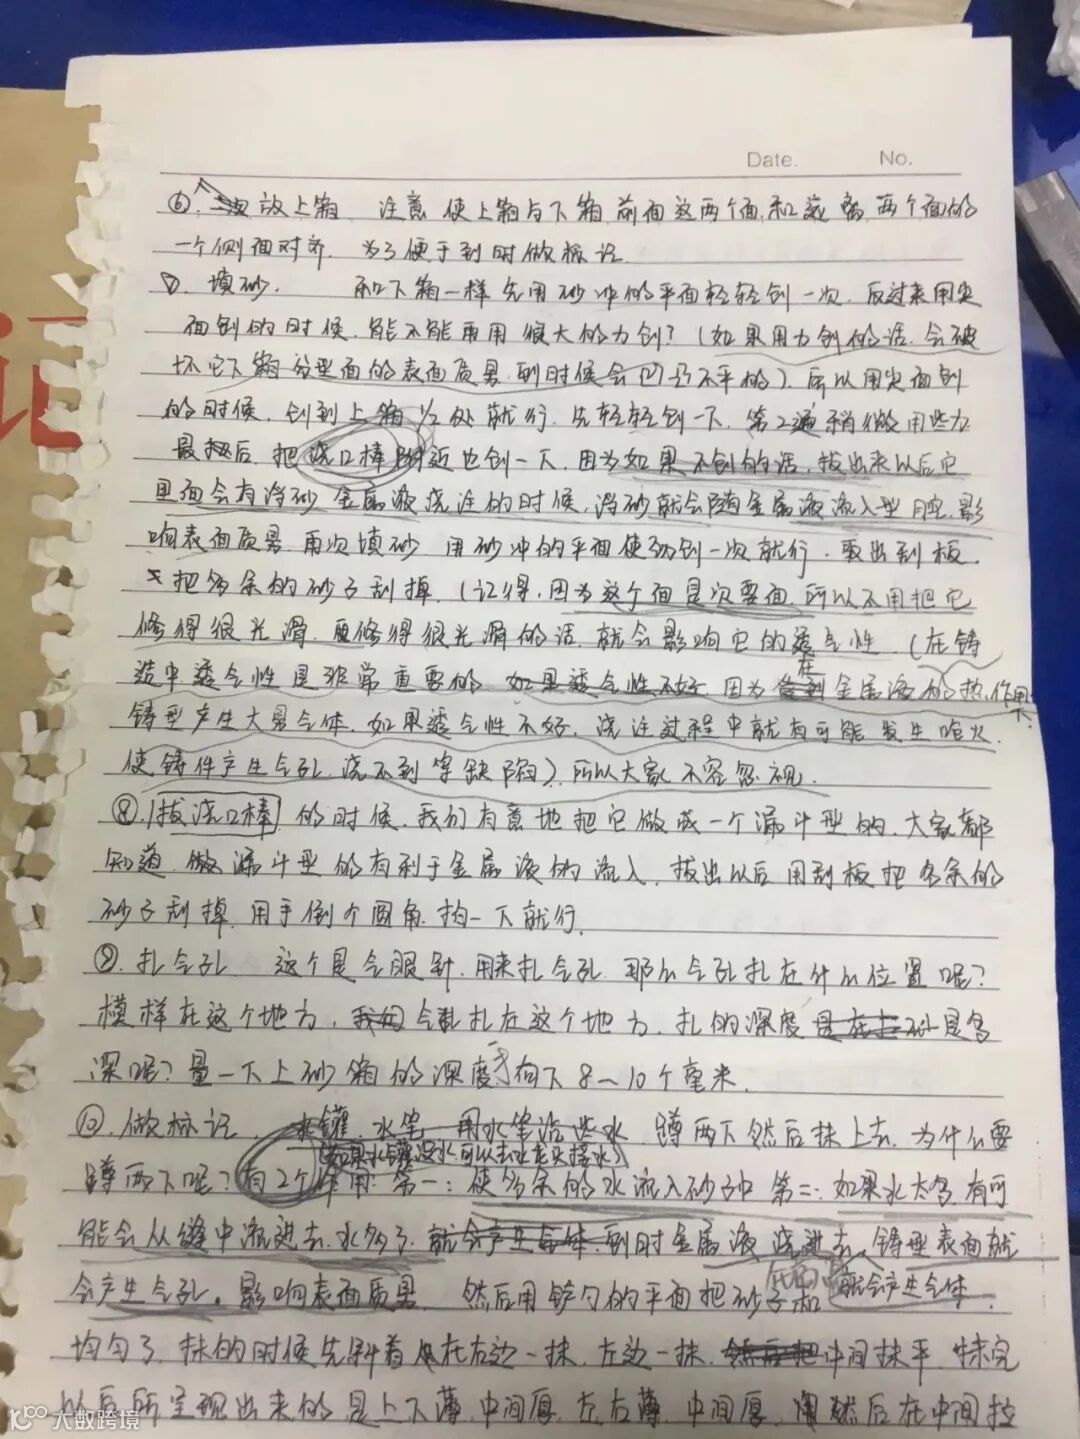 Date. No.
⑥. 放上箱. 注意 使上箱与下箱 前面这两个面,和 两个面的
一个侧面对齐. 为了便于到时做标记.
⑦. 填砂. 和下箱一样 先用砂冲的平面轻轻创一次. 反过来用尖
面创的时候, 能不能再用 很大的力创? (如果用力创的话, 会破
坏它下箱分型面的表面质量, 到时候会凹凸不平的). 所以用尖面创
的时候, 创到上箱1/2处就行. 先轻轻创一下, 第2遍稍微用些力
最后, 把浇口棒附近也创一下, 因为如果不创的话, 拔出来以后它
里面会有浮砂 金属液浇注的时候, 浮砂就会随金属液流入型腔, 影
响表面质量. 再次填砂 用砂冲的平面使劲创一次就行. 取出刮板.
把多余的砂子刮掉. (记得, 因为这个面是次要面, 所以不用把它
修得很光滑. 修得很光滑的话, 就会影响它的透气性. (在铸
造中透气性是非常重要的. 如果透气性不好. 因为在金属液的热作用下,
铸型产生大量气体. 如果透气性不好, 浇注过程中就有可能发生呛火.
使铸件产生气孔, 浇不到等缺陷). 所以大家不容忽视.
⑧. 拔浇口棒 的时候, 我们有意地把它做成一个漏斗型的, 大家都
知道, 做漏斗型的有利于金属液的流入, 拔出以后用刮板把多余的
砂子刮掉. 用手倒个圆角, 拍一下就行.
⑨. 扎气孔 这个是气眼针, 用来扎气孔. 那么气孔扎在什么位置呢?
模样在这个地方, 气孔扎在这个地方, 扎的深度 是多
深呢? 量一下上砂箱的深度, 向下8~10个毫米.
⑩. 做标记. 水罐, 水笔 用水笔沾些水 蹲两下然后抹上去. 为什么要
(如果水罐没水可以去水龙头接水)
蹲两下呢? 有2个作用: 第一: 使多余的水流入砂子中 第二: 如果水太多, 有可
能会从缝中流进去, 水多了, 就会产生气体. 到时金属液浇进去, 铸型表面就
会产生气孔. 影响表面质量. 然后用铲勺的平面把砂子和 就会产生气体.
均匀了. 抹的时候先斜着 在右边一抹, 左边一抹, 中间抹平. 抹完
以后所呈现出来的是上下薄, 中间厚, 左右薄, 中间厚, 然后在中间拉
大数跨境